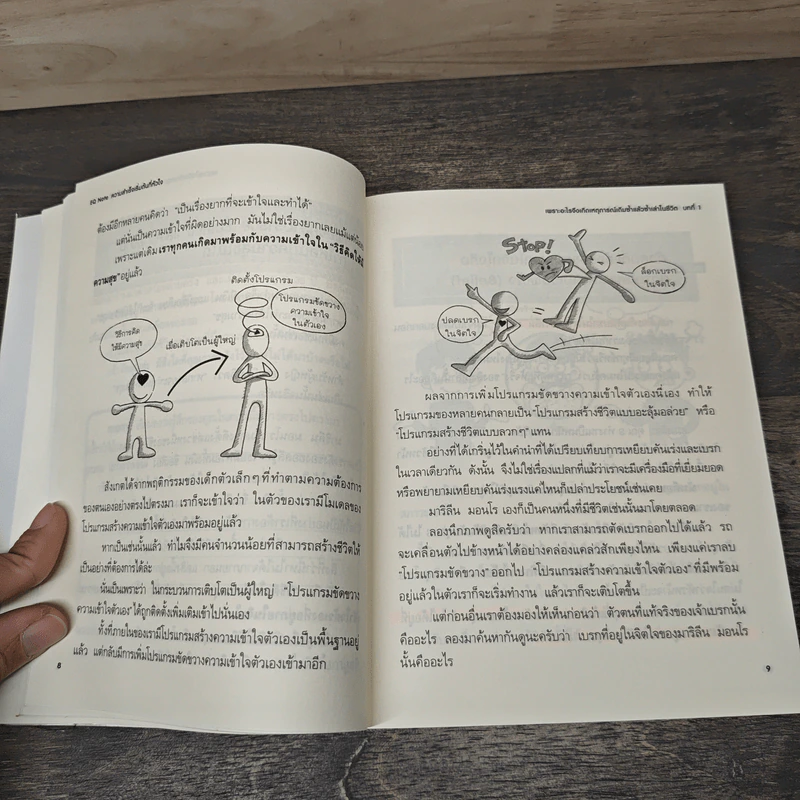 EQ Note ความสำเร็จเริ่มต้นที่หัวใจ
ต้องมีอีกหลายคนคิดว่า "เป็นเรื่องยากที่จะเข้าใจและทำได้"
แต่นั่นเป็นความเข้าใจที่ผิดอย่างมาก มันไม่ใช่เรื่องยากเลยแม้แต่น้อย
เพราะแต่เดิม เราทุกคนเกิดมาพร้อมกับความเข้าใจใน "วิธีคิดให้มี
ความสุข" อยู่แล้ว
ติดตั้งโปรแกรม
โปรแกรมขัดขวาง
ความเข้าใจ
ในตัวเอง
วิธีการคิด
ให้มีความสุข
เมื่อเติบโตเป็นผู้ใหญ่
สังเกตได้จากพฤติกรรมของเด็กตัวเล็กๆ ที่ทำตามความต้องการ
ของตนเองอย่างตรงไปตรงมา เราก็จะเข้าใจว่า ในตัวของเรามีโมเดลของ
โปรแกรมสร้างความเข้าใจตัวเองมาพร้อมอยู่แล้ว
หากเป็นเช่นนั้นแล้ว ทำไมจึงมีคนจำนวนน้อยที่สามารถสร้างชีวิตให้
เป็นอย่างที่ต้องการได้ล่ะ
นั่นเป็นเพราะว่า ในกระบวนการเติบโตเป็นผู้ใหญ่ "โปรแกรมขัดขวาง
ความเข้าใจตัวเอง" ได้ถูกติดตั้งเพิ่มเติมเข้าไปนั่นเอง
ทั้งที่ภายในของเรามีโปรแกรมสร้างความเข้าใจตัวเองเป็นพื้นฐานอยู่
แล้ว แต่กลับมีการเพิ่มโปรแกรมขัดขวางความเข้าใจตัวเองเข้ามาอีก
8
เพราะอะไรจึงเกิดเหตุการณ์เดิมซ้ำแล้วซ้ำเล่าในชีวิต บทที่ 1
STOP!
ล็อกเบรก
ในจิตใจ
ปลดเบรก
ในจิตใจ
ผลจากการเพิ่มโปรแกรมขัดขวางความเข้าใจตัวเองนี่เอง ทำให้
โปรแกรมของหลายคนกลายเป็น "โปรแกรมสร้างชีวิตแบบอะลุ้มอล่วย" หรือ
"โปรแกรมสร้างชีวิตแบบลวกๆ" แทน
อย่างที่ได้เกริ่นไว้ในคำนำที่ได้เปรียบเทียบการเหยียบคันเร่งและเบรก
ในเวลาเดียวกัน ดังนั้น จึงไม่ใช่เรื่องแปลกที่แม้ว่าเราจะมีเครื่องมือที่เยี่ยมยอด
หรือพยายามเหยียบคันเร่งแรงแค่ไหนก็เปล่าประโยชน์เช่นเคย
มาริลีน มอนโร เองก็เป็นคนหนึ่งที่มีชีวิตเช่นนั้นมาโดยตลอด
ลองนึกภาพดูสิครับว่า หากเราสามารถตัดเบรกออกไปได้แล้ว รถ
จะเคลื่อนตัวไปข้างหน้าได้อย่างคล่องแคล่วสักเพียงไหน เพียงแค่เราลบ
"โปรแกรมขัดขวาง" ออกไป "โปรแกรมสร้างความเข้าใจตัวเอง" ที่มีพร้อม
อยู่แล้วในตัวเราก็จะเริ่มทำงาน แล้วเราก็จะเติบโตขึ้น
แต่ก่อนอื่นเราต้องมองให้เห็นก่อนว่า ตัวตนที่แท้จริงของเจ้าเบรกนั้น
คืออะไร ลองมาค้นหากันดูนะครับว่า เบรกที่อยู่ในจิตใจของมาริลีน มอนโร
นั้นคืออะไร
9